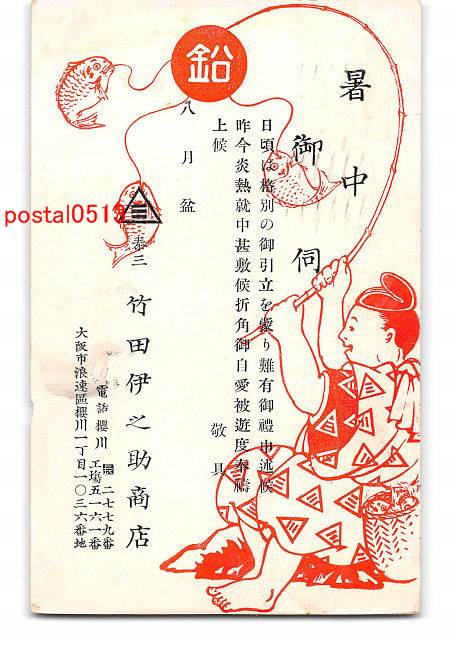 鉛
暑中御伺
日頃は格別の御引立を蒙り難有御禮申述候
昨今炎熱就中甚敷候折角御自愛被遊度奉禱
上候
敬具
八月盆
三
泰三
竹田伊之助商店
電話櫻川
二七七九番
工場五一六一番
大阪市浪速區櫻川一丁目一〇三六番地
postal0513